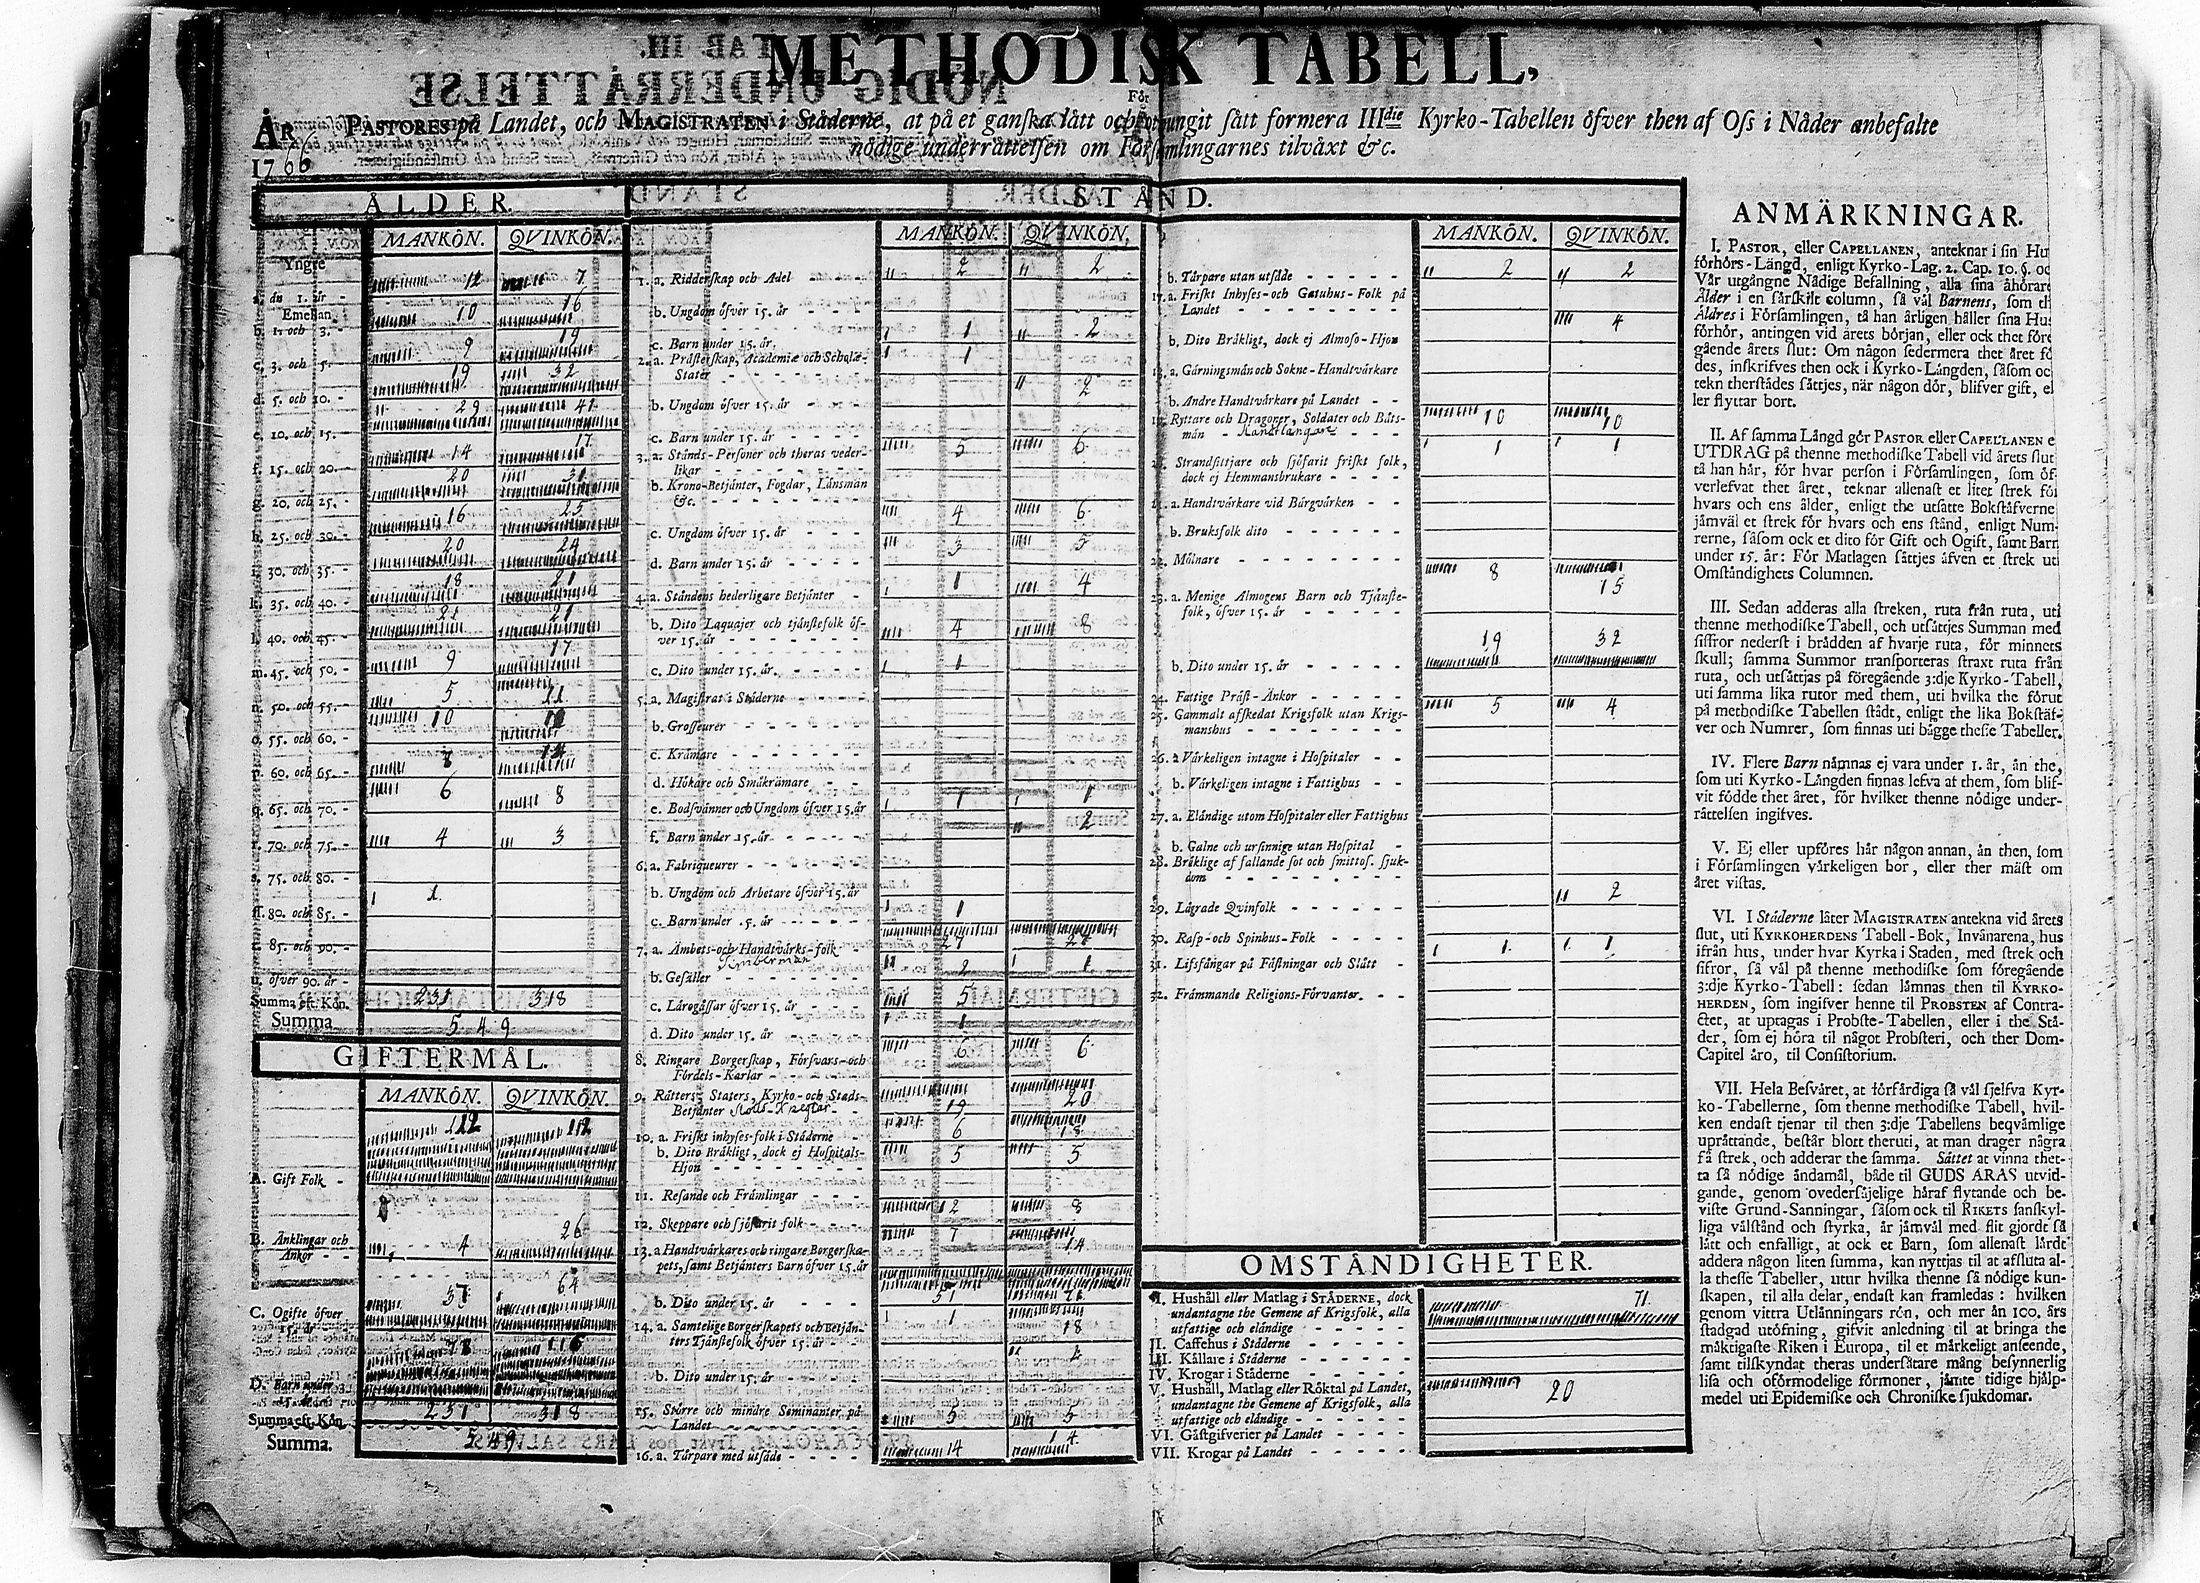 METHODISK TABELL,
För
År PASTORES på Landet, och MAGISTRATEN i Städerne, at på et ganska lätt och otvungit sätt formera IIIdie Kyrko-Tabellen öfver then af Oss i Nåder anbefalte
1766 nödige underrättelsen om Församlingarnes tilväxt &c.
ÅLDER. STÅND.
MANKÖN. QVINKÖN.
Yngre
a. än 1. år - 12 7
Emellan
b. 1. och 3. - 10 16
c. 3. och 5. - 9 19
d. 5. och 10. - 19 32
e. 10. och 15. - 29 41
f. 15. och 20. - 14 17
g. 20. och 25. - 20 31
h. 25. och 30. - 16 25
i. 30. och 35. - 20 24
k. 35. och 40. - 18 21
l. 40. och 45. - 21 21
m. 45. och 50. - 9 17
n. 50. och 55. - 5 11
o. 55. och 60. - 10
p. 60. och 65. -
q. 65. och 70. - 6 8
r. 70. och 75. - 4 3
s. 75. och 80. -
ſſ. 80. och 85. - 1
t. 85. och 90. -
u. öfver 90. år -
Summa eft. Kön. 231 318
Summa 549
GIFTERMÅL.
MANKÖN. QVINKÖN.
A. Gift Folk - 112 112
B. Änklingar och
Änkor - - 4 26
C. Ogifte öfver
15. år - 37 64
D. Barn under
15. år - 78 116
Summa eft. Kön. 231 318
Summa. 549
MANKÖN. QVINKÖN.
1. a. Ridderskap och Adel - - - - 2 2
b. Ungdom öfver 15. år - - - -
c. Barn under 15. år. 1 2
2. a. Prästerskap, Academiæ och Scholæ- 1
Stater - - - - - -
b. Ungdom öfver 15. år - - - - 2
c. Barn under 15. år - - - -
3. a. Stånds-Personer och theras veder- 5 6
likar - - - - - -
b. Krono-Betjänter, Fogdar, Länsmän
&c. - - - - - -
c. Ungdom öfver 15. år - - - - 4 6
d. Barn under 15. år - - - - 3 5
4. a. Ståndens hederligare Betjänter - 1 4
b. Dito Laquajer och tjänstefolk öf-
ver 15. år - - - - - 4 8
c. Dito under 15. år. - - - - 1
5. a. Magistrat i Städerne - - - -
b. Grosseurer - - - - - -
c. Krämare - - - - - -
d. Hökare och Småkrämare - - -
e. Bodsvänner och Ungdom öfver 15. år 1 1
f. Barn under 15. år - - - - 2
6. a. Fabriqueurer - - - - - -
b. Ungdom och Arbetare öfver 15. år
c. Barn under .5. år - - - - 1
7. a. Ämbets- och Handtvärks-folk - 27 27
Timberman
b. Gesäller - - - - 2 1
c. Lärogåssar öfver 15. år - - - 5
d. Dito under 15. år - - - - 1
8. Ringare Borgerskap, Försvars- och 6 6
Fördels-Karlar - - - - -
9. Rätters- Staters, Kyrko- och Stads- 19 20
Betjänter
10. a. Friskt inhyses-folk i Städerne - 6 18
b. Dito Bräkligt, dock ej Hospitals- 5 5
Hjon - - - - - -
11. Resande och Främlingar - - - 12 8
12. Skeppare och sjöfarit folk - - - 7
13. a Handtvärkares och ringare Borgerska- 14
pets, samt Betjänters Barn öfver 15. år
b. Dito under 15. år - - - - 51
14. a. Samtelige Borgerskapets och Betjän- 1 18
ters Tjänstefolk öfver 15. år - - -
b. Dito under 15. år - - - - 4
15. Större och mindre Seminanter på
Landet - - - - - - 5 5
16. a. Tårpare med utsäde - - - - 14 14
MANKÖN. QVINKÖN.
b. Tårpare utan utsäde - - - - - 2 2
17. a. Friskt Inhyses- och Gatuhus-Folk på
Landet - - - - - - 4
b. Dito Bräkligt, dock ej Almoso-Hjon
18. a. Gärningsmän och Sokne-Handtvärkare
b. Andre Handtvärkare på Landet - -
19. Ryttare och Dragoner, Soldater och Båts- 10 10
män - Handtlangare - - -
20. Strandsittjare och sjöfarit friskt folk, 1 1
dock ej Hemmansbrukare - - - -
21. a. Handtvärkare vid Bärgvärken - -
b. Bruksfolk dito - - - - - -
22. Mölnare - - - - - - -
23. a. Menige Almogens Barn och Tjänste- 8 15
folk, öfver 15. år - - - - -
b. Dito under 15. år - - - - - 19 32
24. Fattige Präst-Änkor - - - - -
25. Gammalt afskedat Krigsfolk utan Krigs- 5 4
manshus - - - - - - -
26. a Värkeligen intagne i Hospitaler - -
b. Värkeligen intagne i Fattighus - -
27. a. Eländige utom Hospitaler eller Fattighus
b. Galne och ursinnige utan Hospital -
28. Bräklige af fallande sot och smittos. sjuk-
dom - - - - - - -
29. Lägrade Qvinfolk - - - - - 2
30. Rasp- och Spinhus-Folk - - - -
31. Lifsfångar på Fästningar och Slått - 1 1
32. Främmande Religions-Förvanter. - -
OMSTÄNDIGHETER.
I. Hushåll eller Matlag i STÄDERNE, dock 71.
undantagne the Gemene af Krigsfolk, alla
utfattige och eländige - - - - -
II. Caffehus i Städerne - - - - -
III. Källare i Städerne - - - - -
IV. Krogar i Städerne - - - - -
V. Hushåll, Matlag eller Röktal på Landet, 20
undantagne the Gemene af Krigsfolk, alla
utfattige och eländige - - - - -
VI. Gästgifverier på Landet - - - -
VII. Krogar på Landet - - - - -
ANMÄRKNINGAR.
I. PASTOR, eller CAPELLANEN, anteknar i sin Hu
förhörs-Längd, enligt Kyrko-Lag. 2. Cap. 10. §. oc
Vår utgångne Nådige Befallning, alla sina åhörare
Ålder i en särskilt column, så väl Barnens, som th
Äldres i Församlingen, tå han årligen håller sina Hus
förhör, antingen vid årets början, eller ock thet före
gående årets slut: Om någon sedermera thet året fö
des, inskrifves then ock i Kyrko-Längden, såsom oc
tekn therstädes sättjes, när någon dör, blifver gift, el
ler flyttar bort.
II. Af samma Längd gör PASTOR eller CAPELLANEN e
UTDRAG på thenne methodiske Tabell vid årets slut
tå han här, för hvar person i Församlingen, som öf-
verlefvat thet året, teknar allenast et litet strek för
hvars och ens ålder, enligt the utsatte Bokstäfverne
jämväl et strek för hvars och ens stånd, enligt Num-
rerne, såsom ock et dito för Gift och Ogift, samt Barn
under 15. år: För Matlagen sättjes äfven et strek uti
Omständighets Columnen.
III. Sedan adderas alla streken, ruta från ruta, uti
thenne methodiske Tabell, och utsättjes Summan med
siffror nederst i brädden af hvarje ruta, för minnets
skull; samma Summor transporteras straxt ruta från
ruta, och utsättjas på föregående 3:dje Kyrko-Tabell,
uti samma lika rutor med them, uti hvilka the förut
på methodiske Tabellen städt, enligt the lika Bokstäf-
ver och Numrer, som finnas uti bägge thesse Tabeller.
IV. Flere Barn nämnas ej vara under 1. år, än the,
som uti Kyrko-Längden finnas lefva af them, som blif-
vit födde thet året, för hvilket thenne nödige under-
rättelsen ingifves.
V. Ej eller upföres här någon annan, än then, som
i Församlingen värkeligen bor, eller ther mäst om
året vistas.
VI. I Städerne låter MAGISTRATEN antekna vid årets
slut, uti KYRKOHERDENS Tabell-Bok, Invånarena, hus
ifrån hus, under hvar Kyrka i Staden, med strek och
sifror, så väl på thenne methodiske som föregående
3:dje Kyrko-Tabell: sedan lämnas then til KYRKO-
HERDEN, som ingifver henne til PROBSTEN af Contra-
ctet, at uptagas i Probste-Tabellen, eller i the Stä-
der, som ej höra til något Probsteri, och ther Dom-
Capitel äro, til Consistorium.
VII. Hela Besväret, at förfärdiga så väl sjelfva Kyr-
ko-Tabellerne, som thenne methodiske Tabell, hvil-
ken endast tjenar til then 3:dje Tabellens beqvämlige
uprättande, består blott theruti, at man drager några
få strek, och adderar the samma. Sättet at vinna thet-
ta så nödige ändamål, både til GUDS ÄRAS utvid-
gande, genom ovedersäjelige häraf flytande och be-
viste Grund-Sanningar, såsom ock til RIKETS sanskyl-
liga välstånd och styrka, är jämväl med flit gjorde så
lätt och enfalligt, at ock et Barn, som allenast lärdt
addera någon liten summa, kan nyttjas til at afsluta al-
la thesse Tabeller, utur hvilka thenne så nödige kun-
skapen, til alla delar, endast kan framledas: hvilken
genom vittra Utlänningars rön, och mer än 100. års
stadgad utöfning, gifvit anledning til at bringa the
mäktigaste Riken i Europa, til et märkeligt anseende,
samt tilskyndat theras undersåtare mång besynnerlig
lisa och oförmodelige förmoner, jämte tidige hjälp-
medel uti Epidemiske och Chroniske sjukdomar.